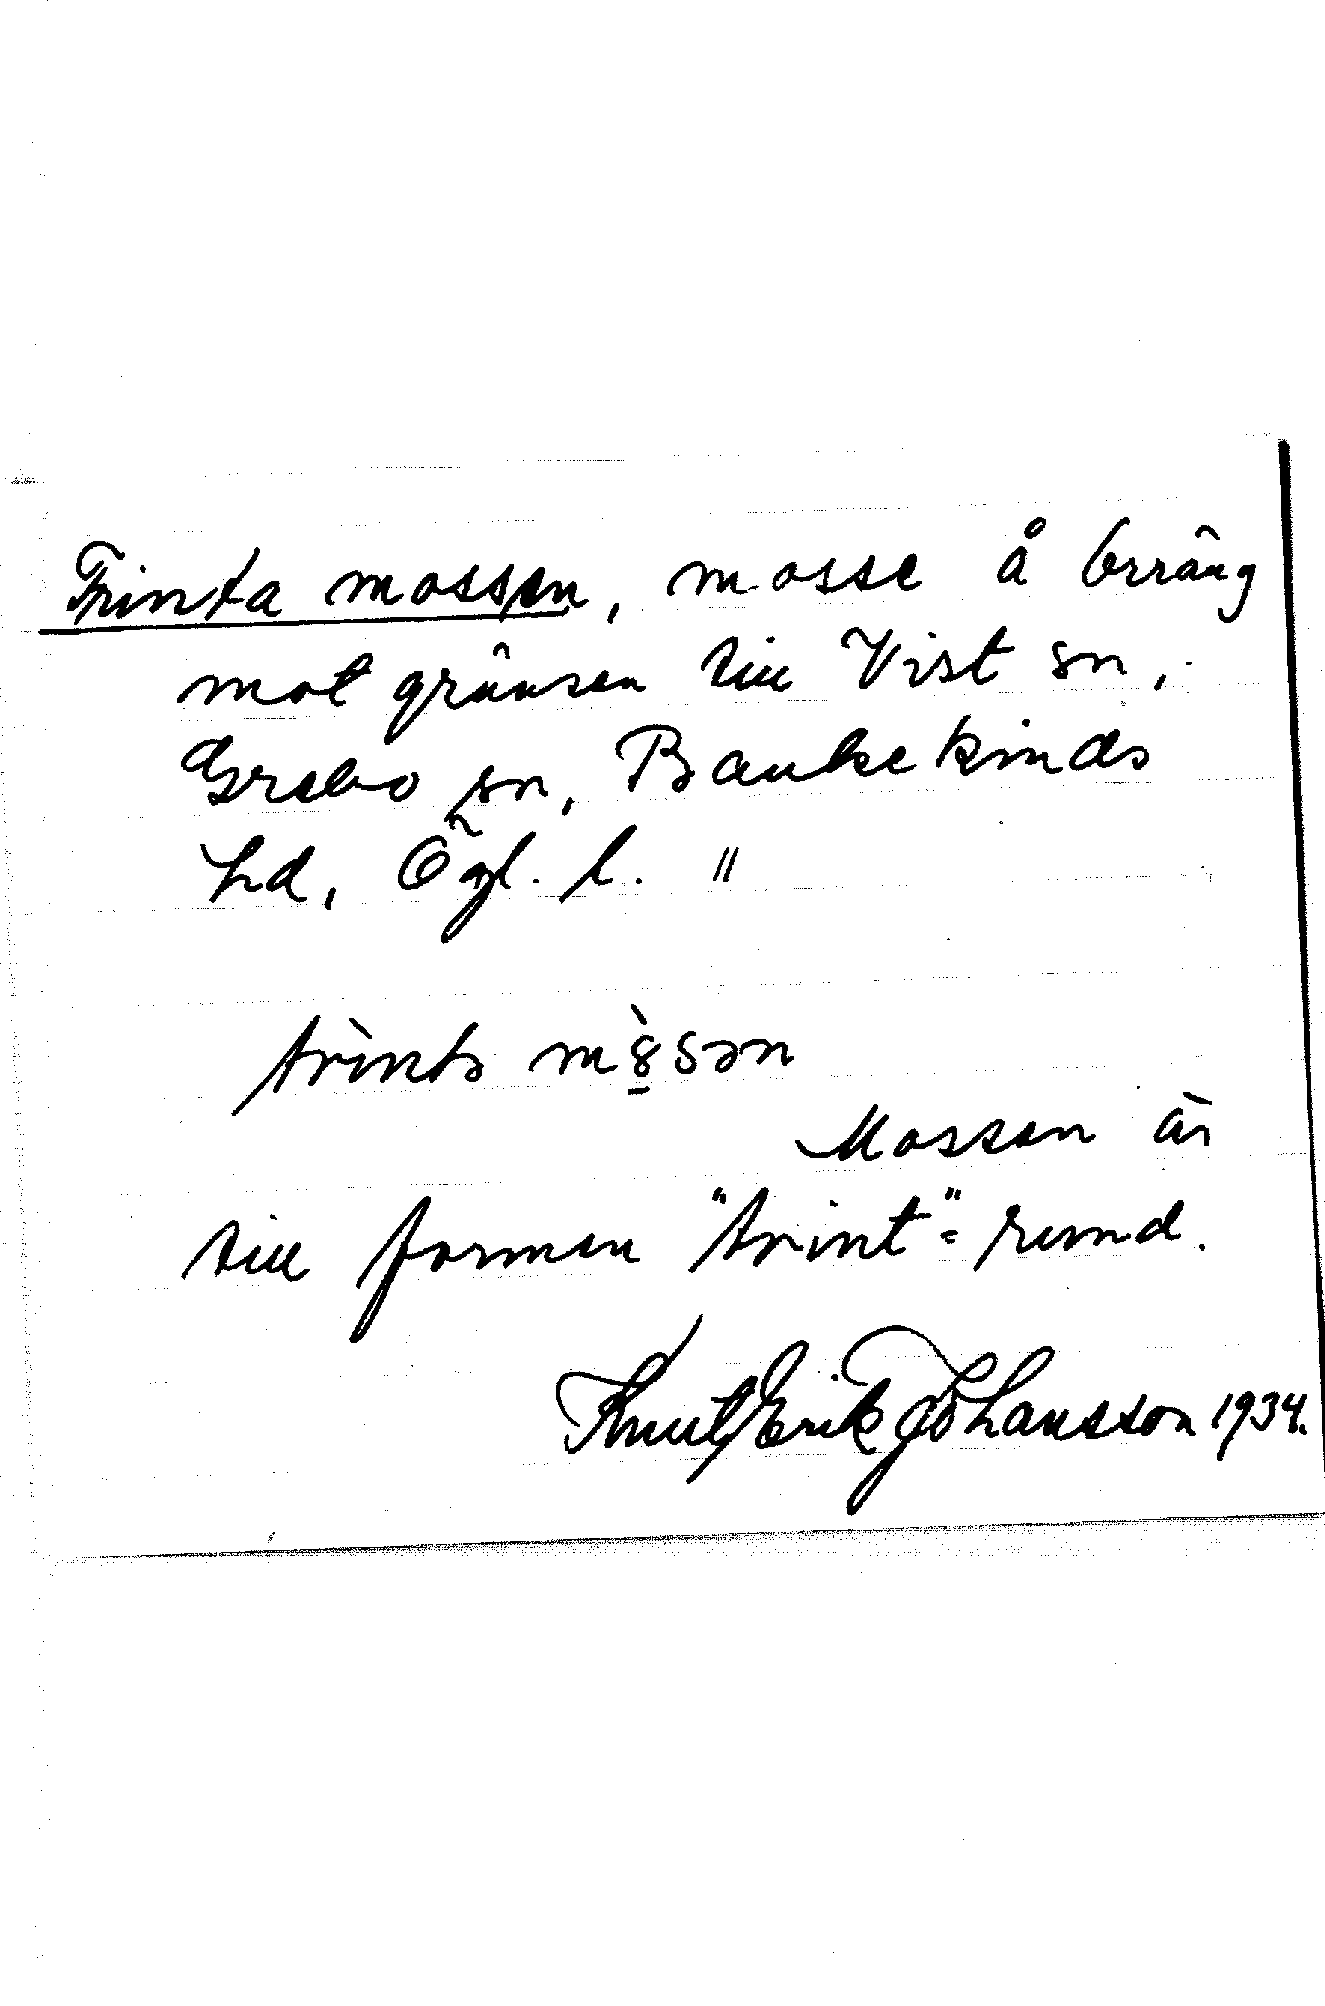 Trinta mossen, mosse å Orräng
mot gränsen till Vist sn,
Grebo sn, Bankekinds
hd, Ögl. l. "
mossen
Mossen är
till formen "trint" = rund.
Knut Erik Johansson 1934.